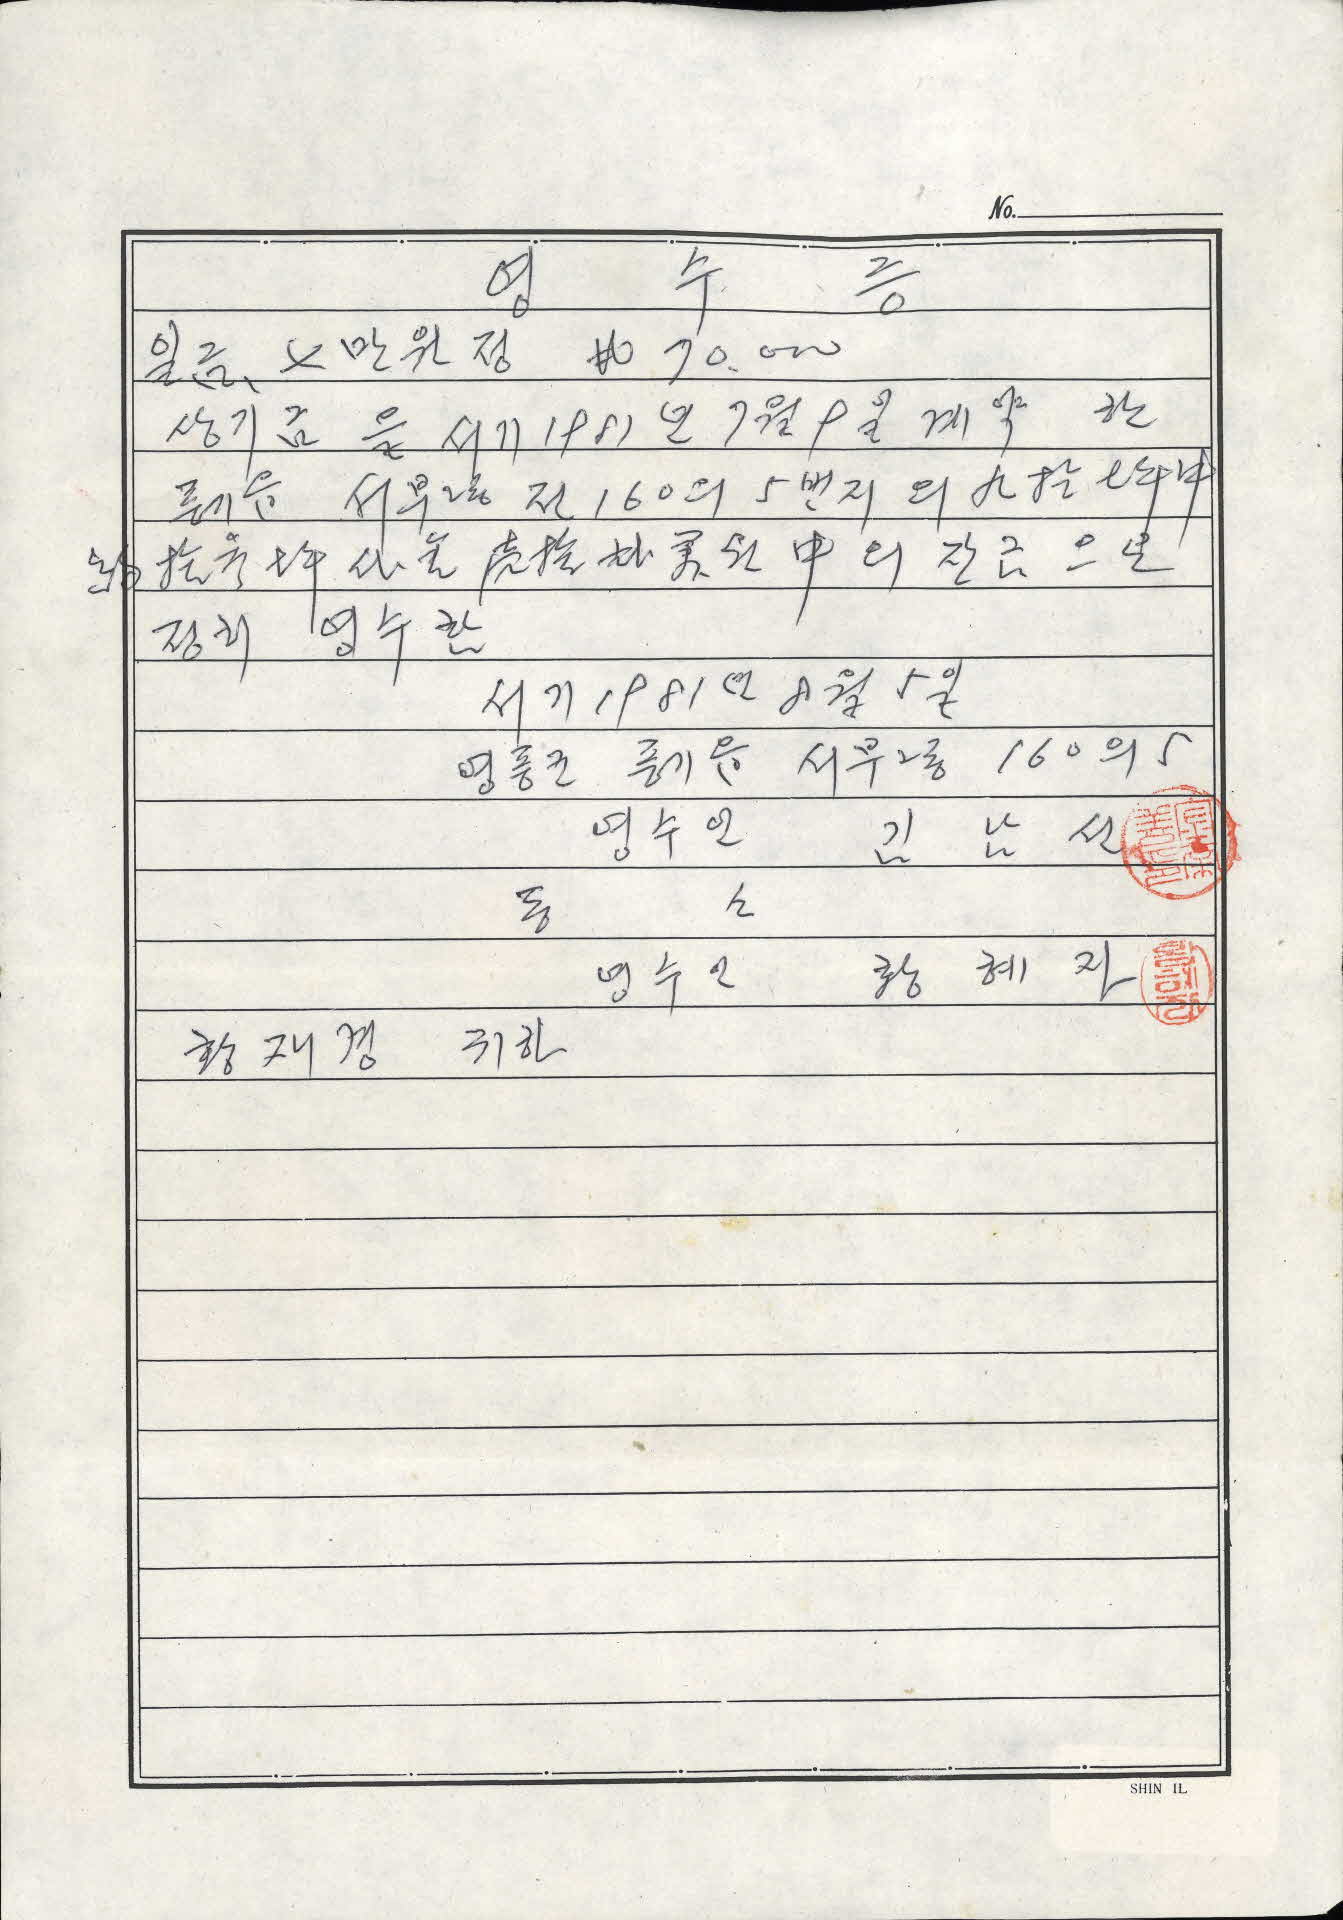 No.
영 수 증
일금 七만원정 ₩ 70.000
상기금 은 서기 1981년 7월 9일 계약 한
풍기읍 서부2동 전 160의 5번지 의 九拾七坪中
拾 坪 中 의 잔금 으로
정히 영수함
서기 1981년 8월 5일
영풍군 풍기읍 서부2동 160의 5
영수인 김 남 선
동 소
영수인 황 혜 자
황재경 귀하
SHIN IL